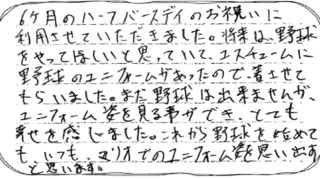 6ヶ月のハーフバースデイのお祝いに
利用させていただきました。将来は、野球
をやってほしいと思っていて、コスチュームに
野球のユニフォームがあったので、着させて
もらいました。まだ野球は出来ませんが、
ユニフォーム姿を見る事ができ、とても
幸せを感じました。これから野球を始めて
も、いつも、マリオでのユニフォーム姿を思い出す
と思います。